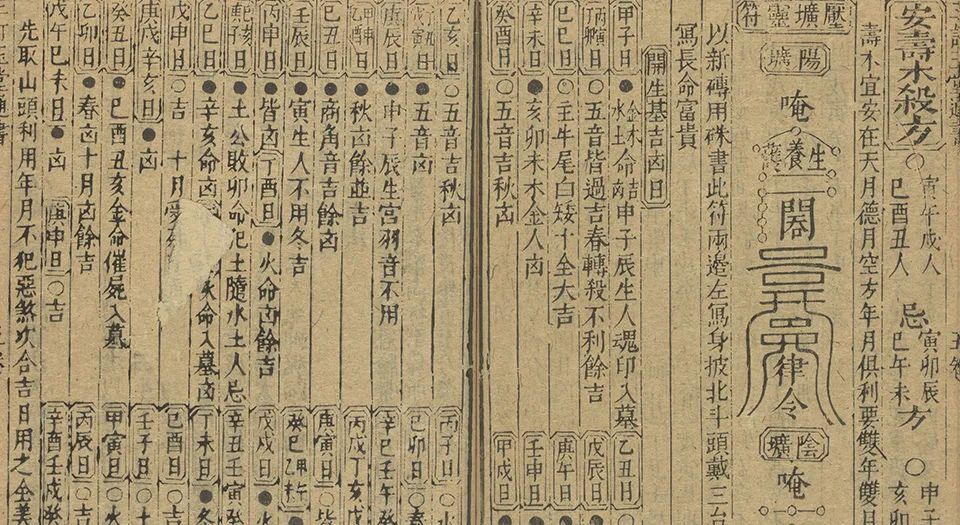 安壽木殺方○寅午戌人 巳酉丑人 忌 寅卯辰 巳午未 方○申子 亥卯
壽不宜安在天月德月空方年月俱利要雙年雙月
壓壙靈符
陽壙
唵
生養
律令
陰壙
唵
以新磚用硃書此符兩邊左寫身披北斗頭戴三台
寫長命富貴
開生基吉凶日
甲子日●金木命吉水土命凶申子辰生人魂印入墓 乙丑日○
丙寅丁卯日○五音皆過吉春轉殺不利餘吉 戊辰日●
己巳日○壬牛尾白矮子全大吉 庚午日●
辛未日●亥卯未木金人凶 壬申日●
癸酉日○五音吉秋凶 甲戌日●
乙亥日○五音吉秋凶 丙子日○
日●五音凶 己卯日○
庚辰日●申子辰生宮羽音不用 辛巳壬午癸
甲申乙酉日○秋凶餘並吉 丙戌丁亥
己丑日●商角音吉餘凶 庚寅日○
壬辰日●寅生人不用冬吉 癸巳甲午
丙申日●皆凶 丁酉日●火命凶餘吉 戊戌日●
●土公敗卯命犯土隨水土人忌 辛丑壬寅癸
●辛亥命凶 火命入墓凶 丁未日●冬
戊申日○吉 十月 己酉日○
庚戌辛亥日●凶 壬子日○
癸丑日●巳酉丑亥金命催屍入墓 甲寅日●火
乙卯日●春凶十月凶餘吉 丙辰日○
戊午己未日●凶 庚申日○吉 辛酉壬戌癸
先取山頭利用年月不犯惡煞次合吉日用之全美